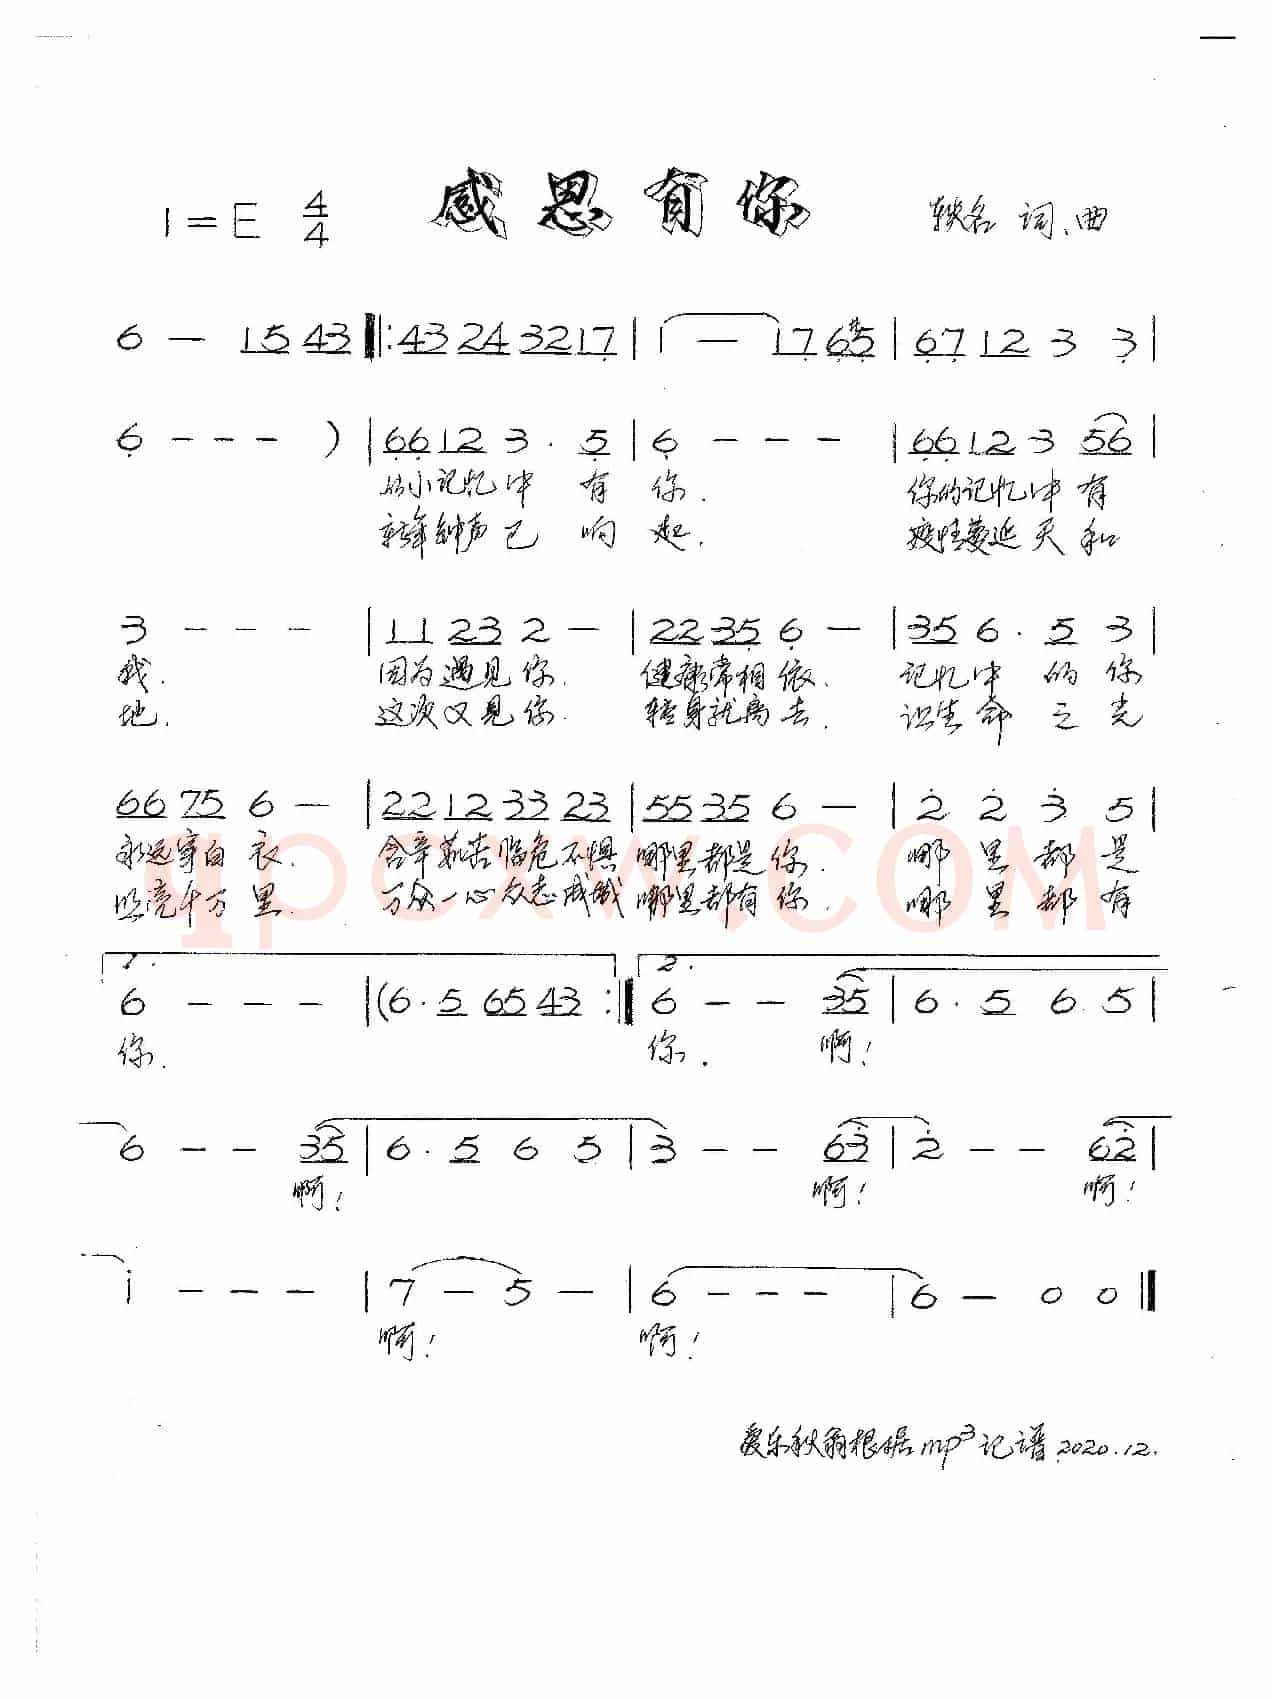 1=E 4/4 感恩有你 轶名 词、曲
6 — 15 43 ‖: 43 24 3217 | 1 — 17 6#5 | 67 12 3 3 |
6 - - - ) | 6612 3 · 5 | 6 - - - | 6612 3 56 |
从小记忆中 有 你. 你的记忆中 有
新年钟声已 响 起. 疫情蔓延天 和
3 - - - | 11 23 2 — | 2235 6 — | 35 6 · 5 3 |
我. 因为遇见你. 健康常相依. 记忆中 的 你
地. 这次又见你. 转身就离去. 让生命 之 光
66 75 6 — | 2212 33 23 | 5535 6 — | 2 2 3 5 |
永远穿白衣. 含辛茹苦临危不惧 哪里都是你. 哪 里 都 是
照亮千万里. 万众一心众志成城 哪里都有你. 哪 里 都 有
1. 2.
6 - - - | (6 · 5 65 43 :‖ 6 - - 35 | 6 · 5 6 5 |
你. 你. 啊!
6 - - 35 | 6 · 5 6 5 | 3 - - 63 | 2 - - 62 |
啊! 啊! 啊!
1 - - - | 7 — 5 — | 6 - - - | 6 — 0 0 ‖
啊! 啊!
爱乐秋翁根据mp3记谱2020.12.
qpcxw.COM